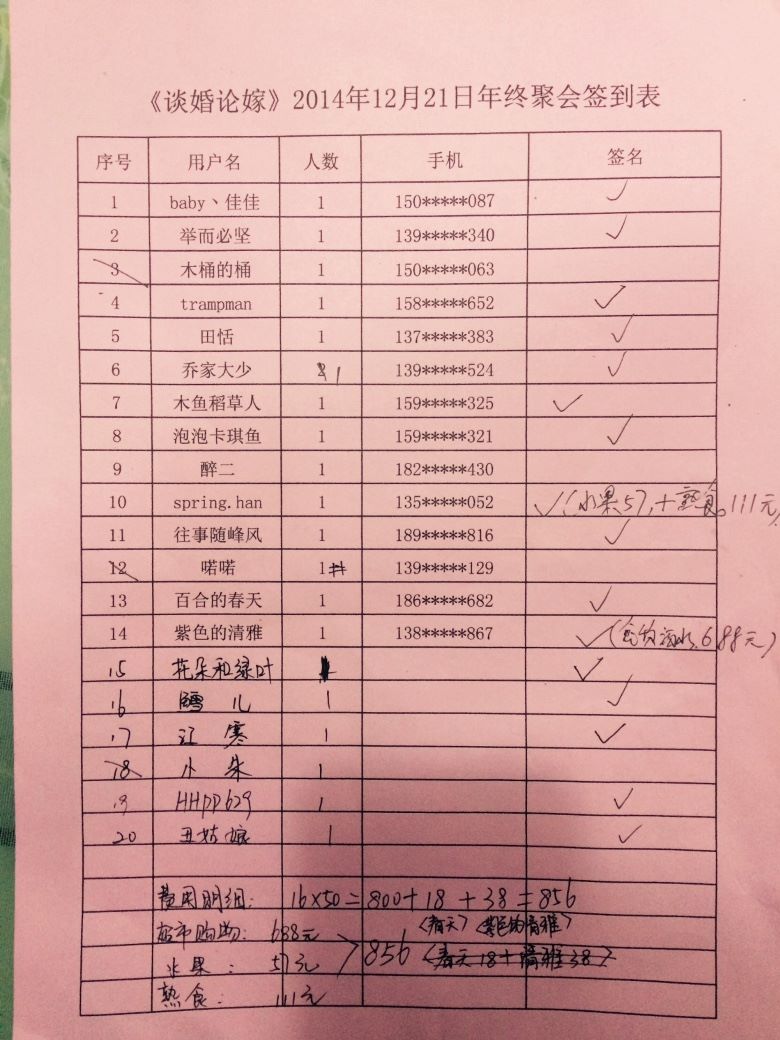 《谈婚论嫁》2014年12月21日年终聚会签到表
序号 用户名 人数 手机 签名
1 baby丶佳佳 1 150*****087 ✓
2 举而必坚 1 139*****340 ✓
3 木桶的桶 1 150*****063
4 trampman 1 158*****652 ✓
5 田恬 1 137*****383 ✓
6 乔家大少 1 139*****524 ✓
7 木鱼稻草人 1 159*****325 ✓
8 泡泡卡琪鱼 1 159*****321 ✓
9 醉二 1 182*****430
10 spring.han 1 135*****052 ✓(水果57,+熟食。111元)
11 往事随峰风 1 189*****816 ✓
12 喏喏 1 139*****129
13 百合的春天 1 186*****682 ✓
14 紫色的清雅 1 138*****867 ✓(688元)
15 花朵和绿叶 ✓
16 儿 1 ✓
17 江寒 1 ✓
18 小朱 1
19 HHpp629 1 ✓
20 丑姑娘 1 ✓
费用明细: 16×50=800+18+38=856
<春天> <紫色的清雅>
超市购物: 688元
水果: 57元 > 856 <春天18+清雅38>
熟食: 111元